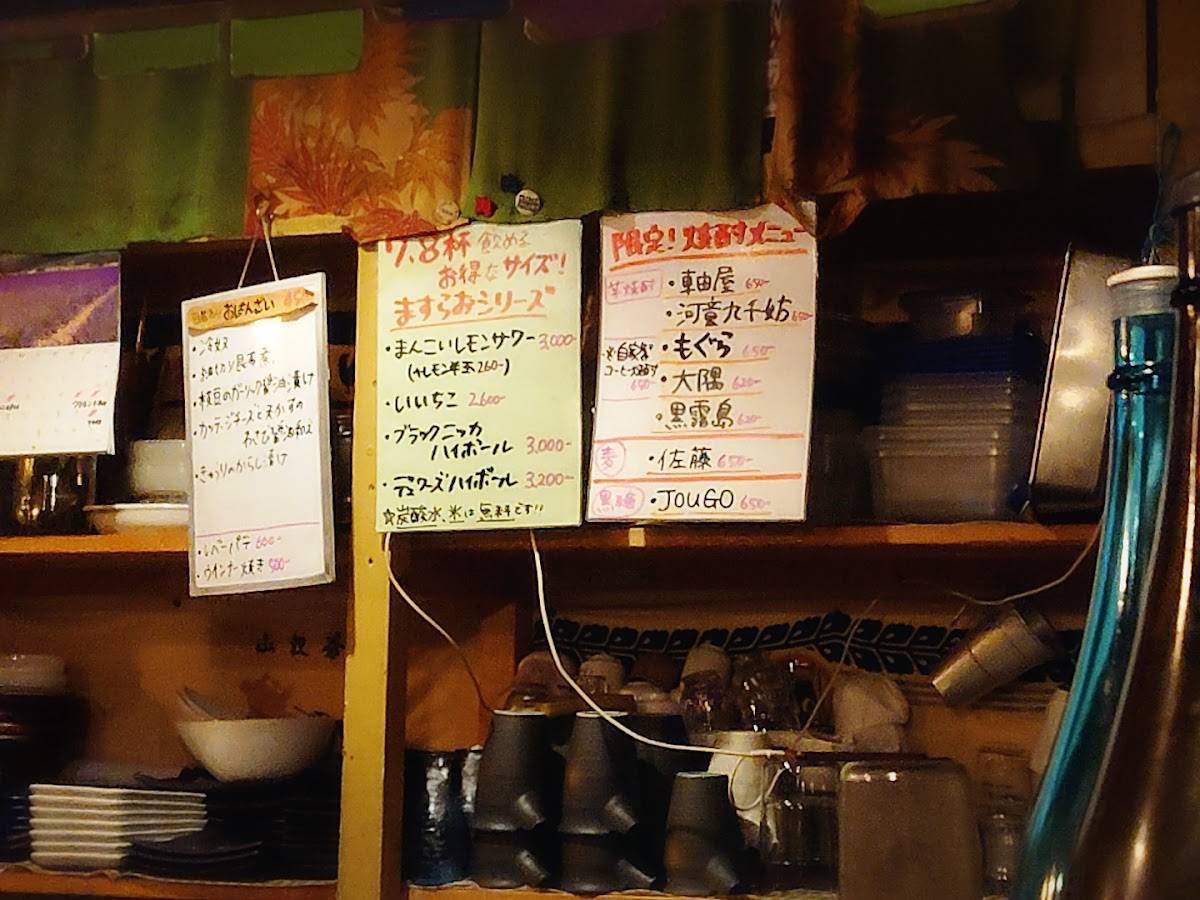 おばんざい
・冷奴
・細切り昆布煮
・枝豆のガーリック醤油漬け
・カッテージチーズと
わさび醤油和え
・きゅうりのからし漬け
・レバーパテ 600-
・ウインナー焼き 500-
7,8杯 飲める
お得なサイズ!
ますらおシリーズ
・まんこいレモンサワー 3,000-
(生レモン半玉 260-)
・いいちこ 2600-
・ブラックニッカ
ハイボール 3,000-
・デュワーズハイボール 3,200-
☆炭酸水、氷は無料です!!
限定!焼酎メニュー
芋焼酎
・軸屋 650-
・河童九千坊 650-
・もぐら 650-
※自家製
コーヒー焼酎
650-
・大隅 620-
・黒霧島 620-
麦
・佐藤 650-
黒糖
・JOUGO 650-